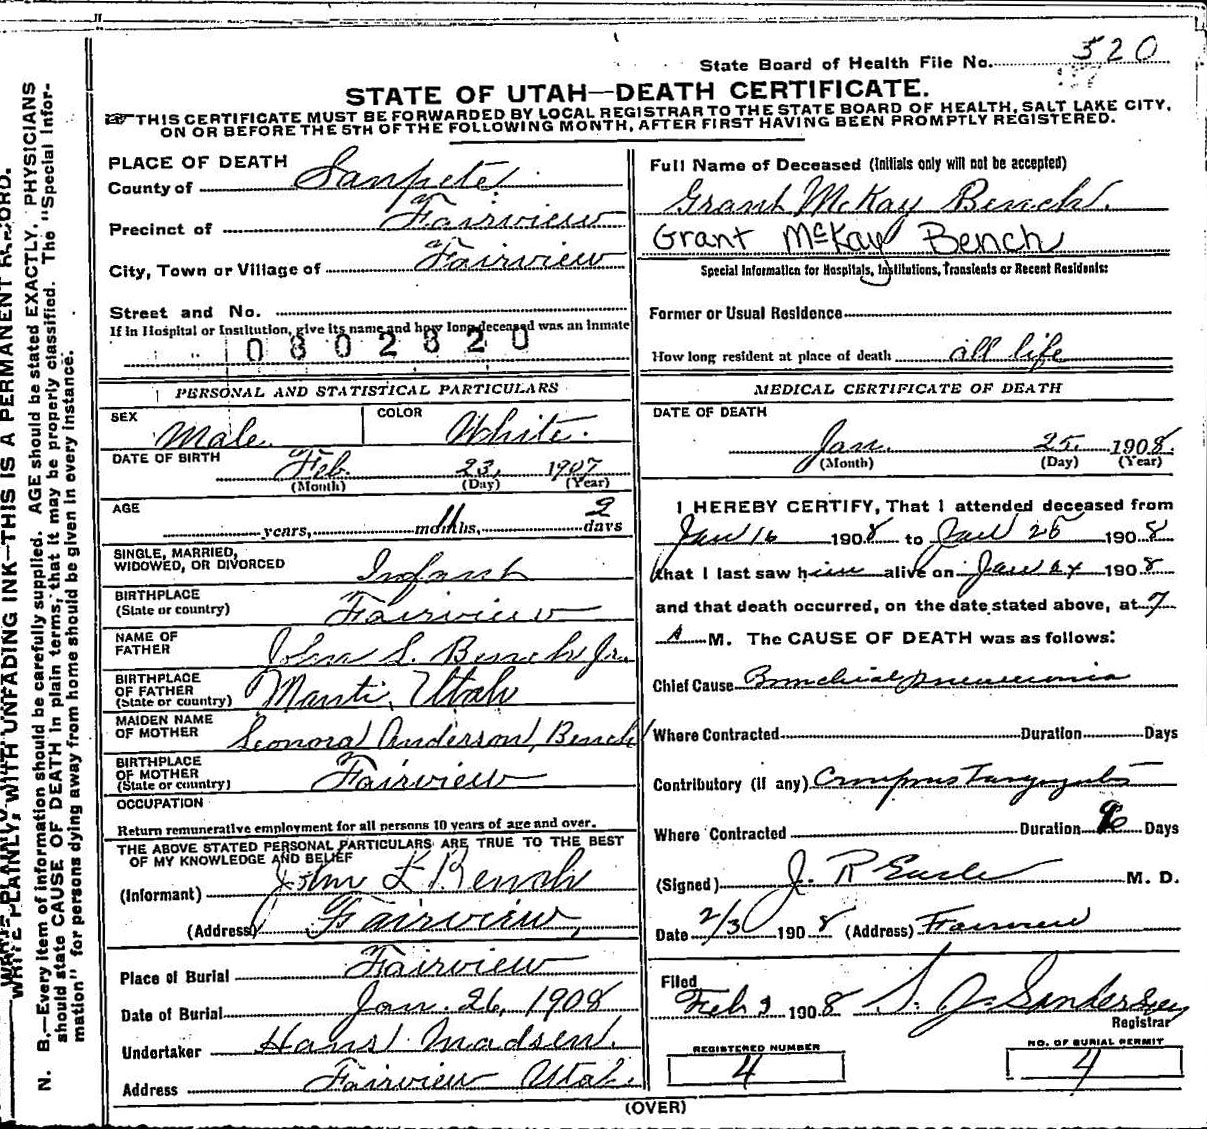 State Board of Health File No. 520
STATE OF UTAH—DEATH CERTIFICATE.
THIS CERTIFICATE MUST BE FORWARDED BY LOCAL REGISTRAR TO THE STATE BOARD OF HEALTH, SALT LAKE CITY,
ON OR BEFORE THE 5TH OF THE FOLLOWING MONTH, AFTER FIRST HAVING BEEN PROMPTLY REGISTERED.
WRITE PLAINLY, WITH UNFADING INK—THIS IS A PERMANENT RECORD.
N. B.—Every item of information should be carefully supplied. AGE should be stated EXACTLY. PHYSICIANS
should state CAUSE OF DEATH in plain terms, that it may be properly classified. The "Special Infor-
mation" for persons dying away from home should be given in every instance.
PLACE OF DEATH
County of Sanpete
Precinct of Fairview
City, Town or Village of Fairview
Street and No.
If in Hospital or Institution, give its name and how long deceased was an inmate
0802820
PERSONAL AND STATISTICAL PARTICULARS
SEX Male
COLOR White.
DATE OF BIRTH Feb. 23, 1907
(Month) (Day) (Year)
AGE years, 11 months, 2 days
SINGLE, MARRIED,
WIDOWED, OR DIVORCED Infant
BIRTHPLACE
(State or country) Fairview
NAME OF
FATHER John L. Bench Jr.
BIRTHPLACE
OF FATHER
(State or country) Manti, Utah
MAIDEN NAME
OF MOTHER Leonora Anderson, Bench
BIRTHPLACE
OF MOTHER
(State or country) Fairview
OCCUPATION
Return remunerative employment for all persons 10 years of age and over.
THE ABOVE STATED PERSONAL PARTICULARS ARE TRUE TO THE BEST
OF MY KNOWLEDGE AND BELIEF
(Informant) John L Bench
(Address) Fairview,
Place of Burial Fairview
Date of Burial Jan. 26, 1908
Undertaker Hans Madsen.
Address Fairview Utah
Full Name of Deceased (Initials only will not be accepted)
Grant McKay Bench.
Grant McKay Bench
Special Information for Hospitals, Institutions, Transients or Recent Residents:
Former or Usual Residence
How long resident at place of death all life
MEDICAL CERTIFICATE OF DEATH
DATE OF DEATH
Jan. 25, 1908.
(Month) (Day) (Year)
I HEREBY CERTIFY, That I attended deceased from
Jan 16 1908 to Jan 25 1908
that I last saw him alive on Jan 24 1908
and that death occurred, on the date stated above, at 7
A M. The CAUSE OF DEATH was as follows:
Chief Cause Bronchial pneumonia
Where Contracted Duration Days
Contributory (if any) Croupous Laryngitis
Where Contracted Duration Days
(Signed) J. R. M. D.
Date 2/3 1908 (Address) Fairview
Filed
Feb 3 1908 S. J. Sanderson
Registrar
REGISTERED NUMBER
4
NO. OF BURIAL PERMIT
4
(OVER)